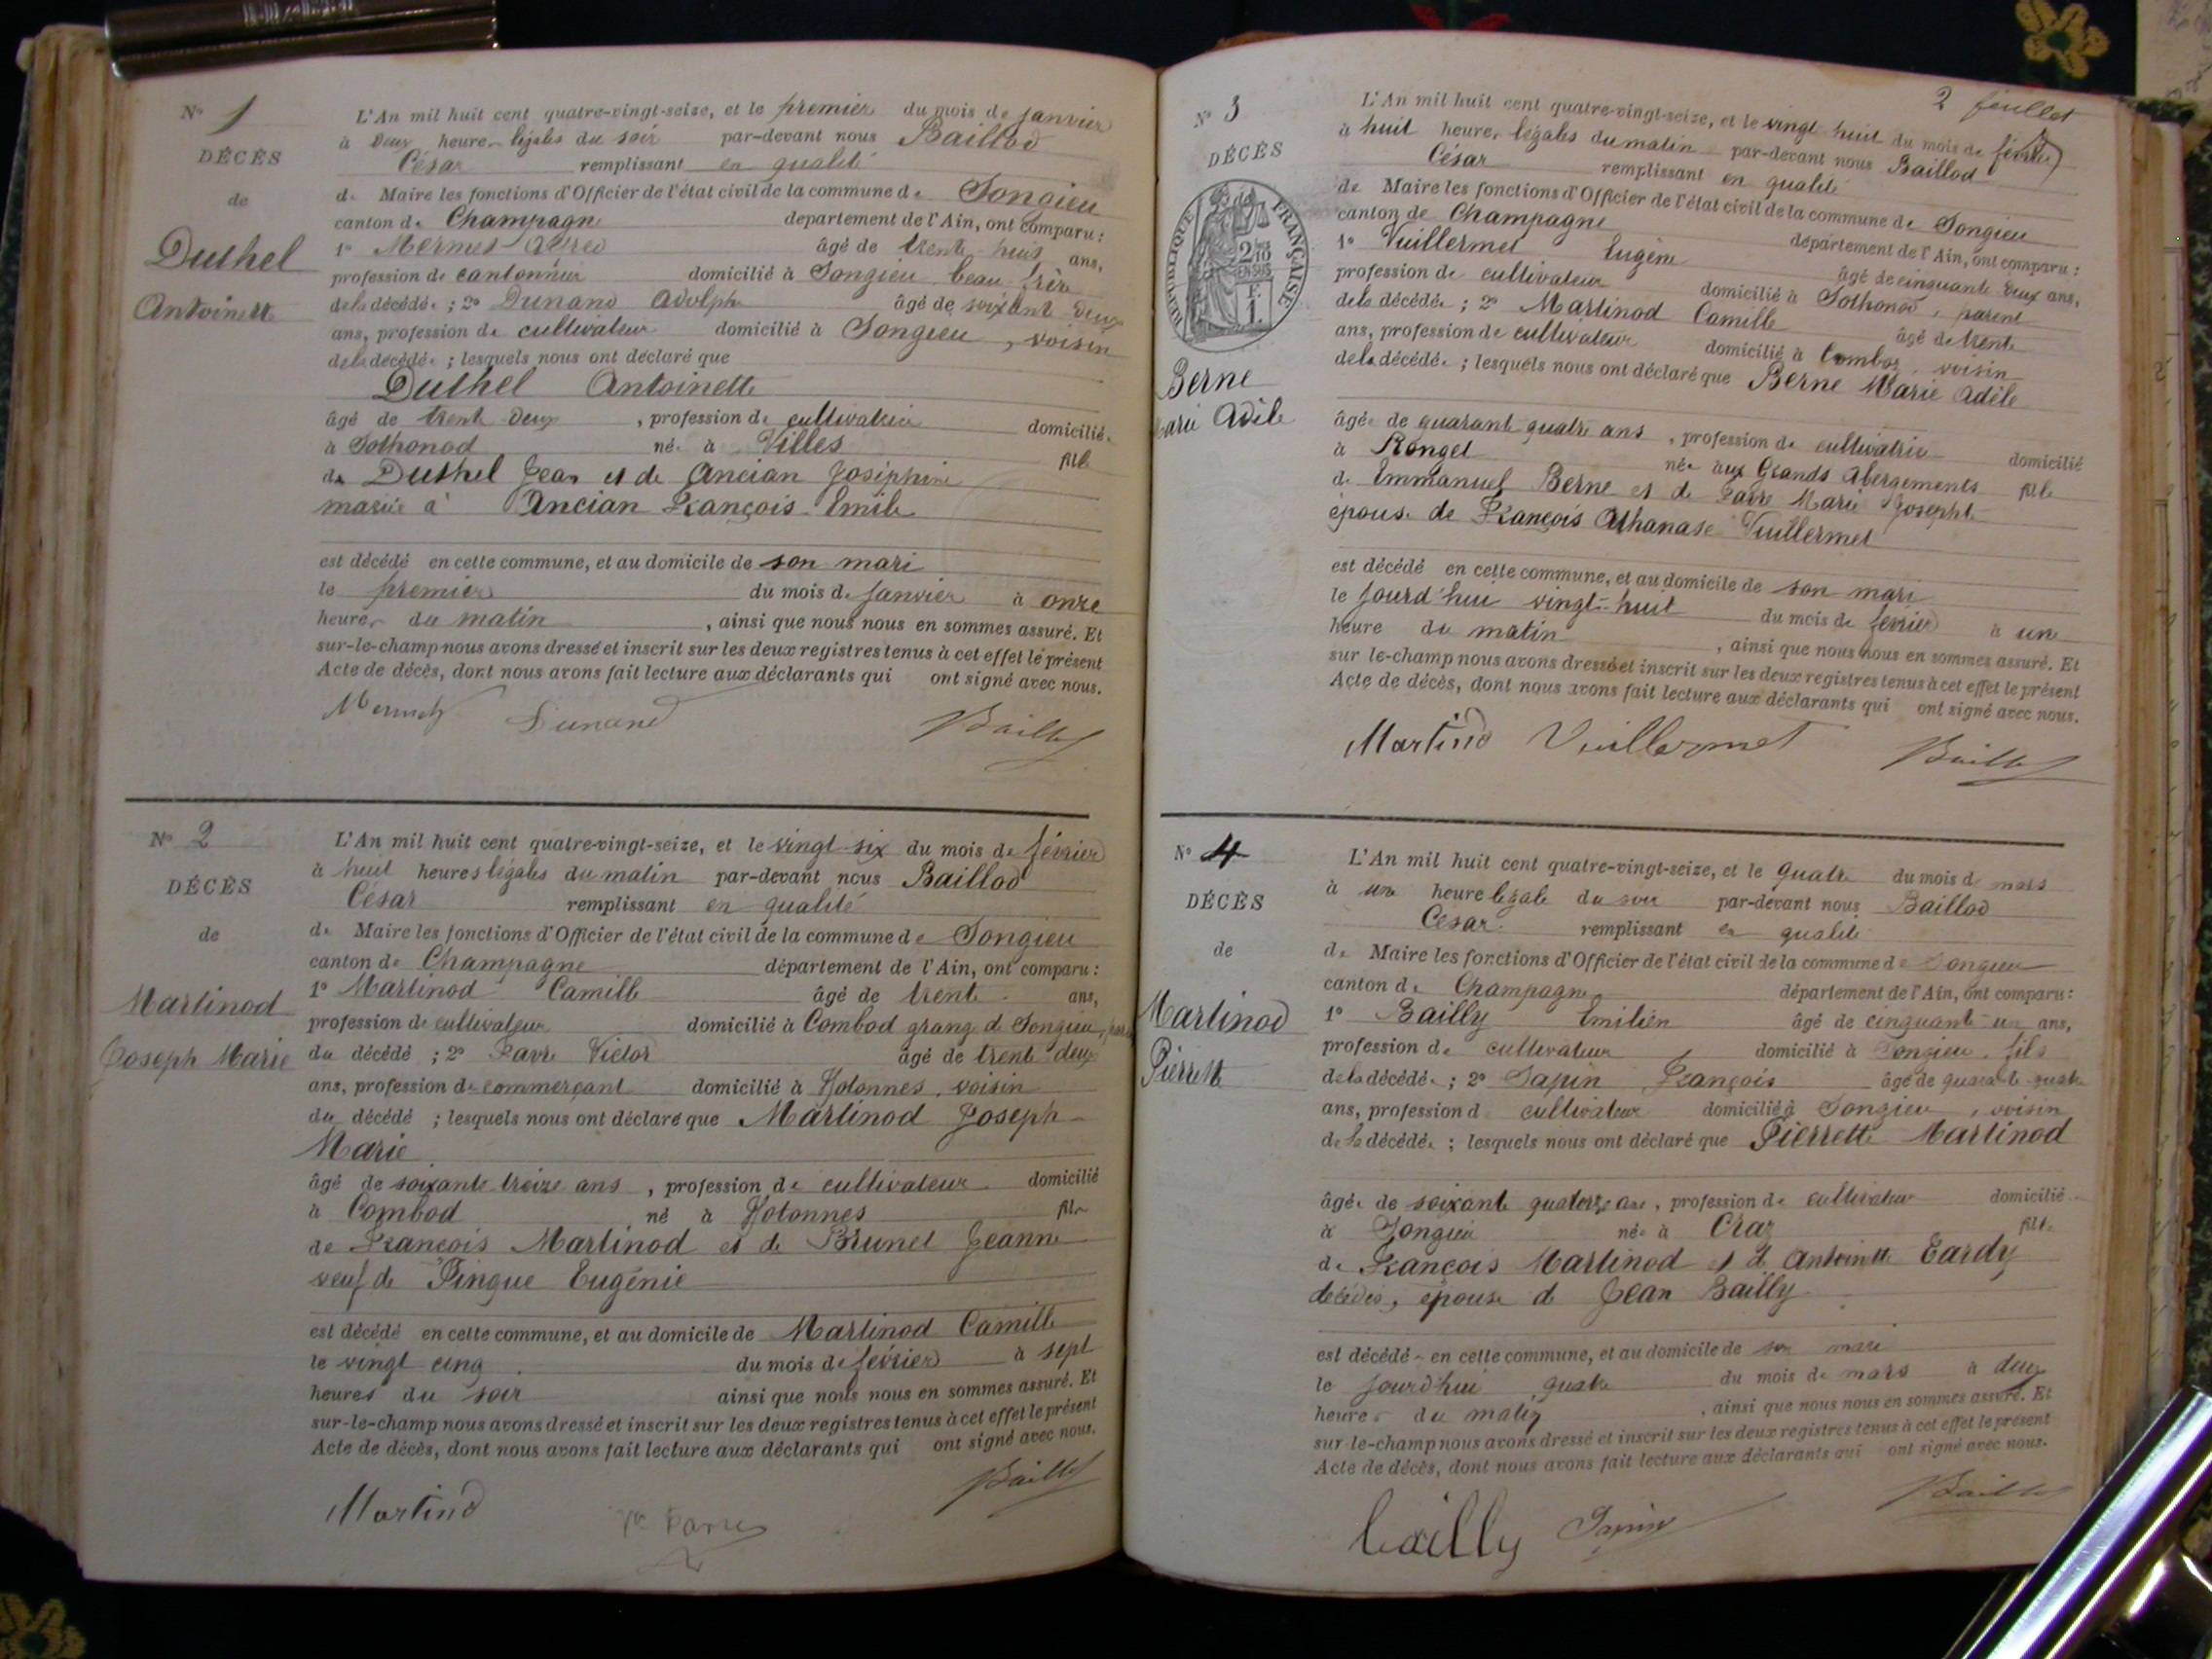 N° 1
DÉCÈS
de
Duthel
Antoinette
L'An mil huit cent quatre-vingt-seize, et le premier du mois de janvier
à deux heures légales du soir par-devant nous Baillod
César remplissant en qualité
de Maire les fonctions d'Officier de l'état civil de la commune de Songieu
canton de Champagne département de l'Ain, ont comparu :
1° Mermet âgé de trente huit ans,
profession de cantonnier domicilié à Songieu beau frère
de la décédée ; 2° Dunand Adolphe âgé de soixante deux
ans, profession de cultivateur domicilié à Songieu , voisin
de la décédée ; lesquels nous ont déclaré que
Duthel Antoinette
âgé de trente deux , profession de cultivatrice domiciliée
à Sothonod née à Villes fille
de Duthel Jean et de Ancian Joséphine
mariée à Ancian François Emile
est décédé en cette commune, et au domicile de son mari
le premier du mois de Janvier à onze
heures du matin , ainsi que nous nous en sommes assuré. Et
sur-le-champ nous avons dressé et inscrit sur les deux registres tenus à cet effet le présent
Acte de décès, dont nous avons fait lecture aux déclarants qui ont signé avec nous.
Mermet Dunand Baillod
N° 2
DÉCÈS
de
Martinod
Joseph Marie
L'An mil huit cent quatre-vingt-seize, et le vingt six du mois de février
à huit heures légales du matin par-devant nous Baillod
César remplissant en qualité
de Maire les fonctions d'Officier de l'état civil de la commune de Songieu
canton de Champagne département de l'Ain, ont comparu :
1° Martinod Camille âgé de trente ans,
profession de cultivateur domicilié à Combod grang. de Songieu,
du décédé ; 2° Favre Victor âgé de trente deux
ans, profession de commerçant domicilié à Hotonnes, voisin
du décédé ; lesquels nous ont déclaré que Martinod Joseph
Marie
âgé de soixante treize ans , profession de cultivateur domicilié
à Combod né à Hotonnes fils
de François Martinod et de Brunet Jeanne
veuf de Pingue Eugénie
est décédé en cette commune, et au domicile de Martinod Camille
le vingt cinq du mois de février à sept
heures du soir ainsi que nous nous en sommes assuré. Et
sur-le-champ nous avons dressé et inscrit sur les deux registres tenus à cet effet le présent
Acte de décès, dont nous avons fait lecture aux déclarants qui ont signé avec nous.
Martinod Vor Favre Baillod
2 feuillet
N° 3
DÉCÈS
RÉPUBLIQUE FRANÇAISE
Berne
Marie Adèle
L'An mil huit cent quatre-vingt-seize, et le vingt huit du mois de février
à huit heures légales du matin par-devant nous Baillod
César remplissant en qualité
de Maire les fonctions d'Officier de l'état civil de la commune de Songieu
canton de Champagne département de l'Ain, ont comparu :
1° Vuillermet Eugène âgé de cinquante deux ans,
profession de cultivateur domicilié à Sothonod, parent
de la décédée ; 2° Martinod Camille âgé de trente
ans, profession de cultivateur domicilié à Combod, voisin
de la décédée ; lesquels nous ont déclaré que Berne Marie Adèle
âgée de quarante quatre ans , profession de cultivatrice domicilié
à Rongel née aux Grands Abergements fille
de Emmanuel Berne et de Favre Marie Josephte
épouse de François Athanase Vuillermet
est décédé en cette commune, et au domicile de son mari
le jourd'hui vingt-huit du mois de février à une
heure du matin , ainsi que nous nous en sommes assuré. Et
sur le-champ nous avons dressé et inscrit sur les deux registres tenus à cet effet le présent
Acte de décès, dont nous avons fait lecture aux déclarants qui ont signé avec nous.
Martinod Vuillermet Baillod
N° 4
DÉCÈS
de
Martinod
Pierrette
L'An mil huit cent quatre-vingt-seize, et le quatre du mois de mars
à une heure légale du soir par-devant nous Baillod
César remplissant en qualité
de Maire les fonctions d'Officier de l'état civil de la commune de Songieu
canton de Champagne département de l'Ain, ont comparu :
1° Bailly Emilien âgé de cinquante un ans,
profession de cultivateur domicilié à Songieu, fils
de la décédée ; 2° Sapin François âgé de quarante quatre
ans, profession d cultivateur domicilié à Songieu , voisin
de la décédée ; lesquels nous ont déclaré que Pierrette Martinod
âgée de soixante quatorze ans, profession de cultivateur domicilié
à Songieu née à Craz fille
de François Martinod et d'Antoinette Tardy
décédés, épouse de Jean Bailly
est décédé en cette commune, et au domicile de son mari
le jourd'hui quatre du mois de mars à deux
heures du matin , ainsi que nous nous en sommes assuré. Et
sur-le-champ nous avons dressé et inscrit sur les deux registres tenus à cet effet le présent
Acte de décès, dont nous avons fait lecture aux déclarants qui ont signé avec nous.
bailly Sapin Baillod